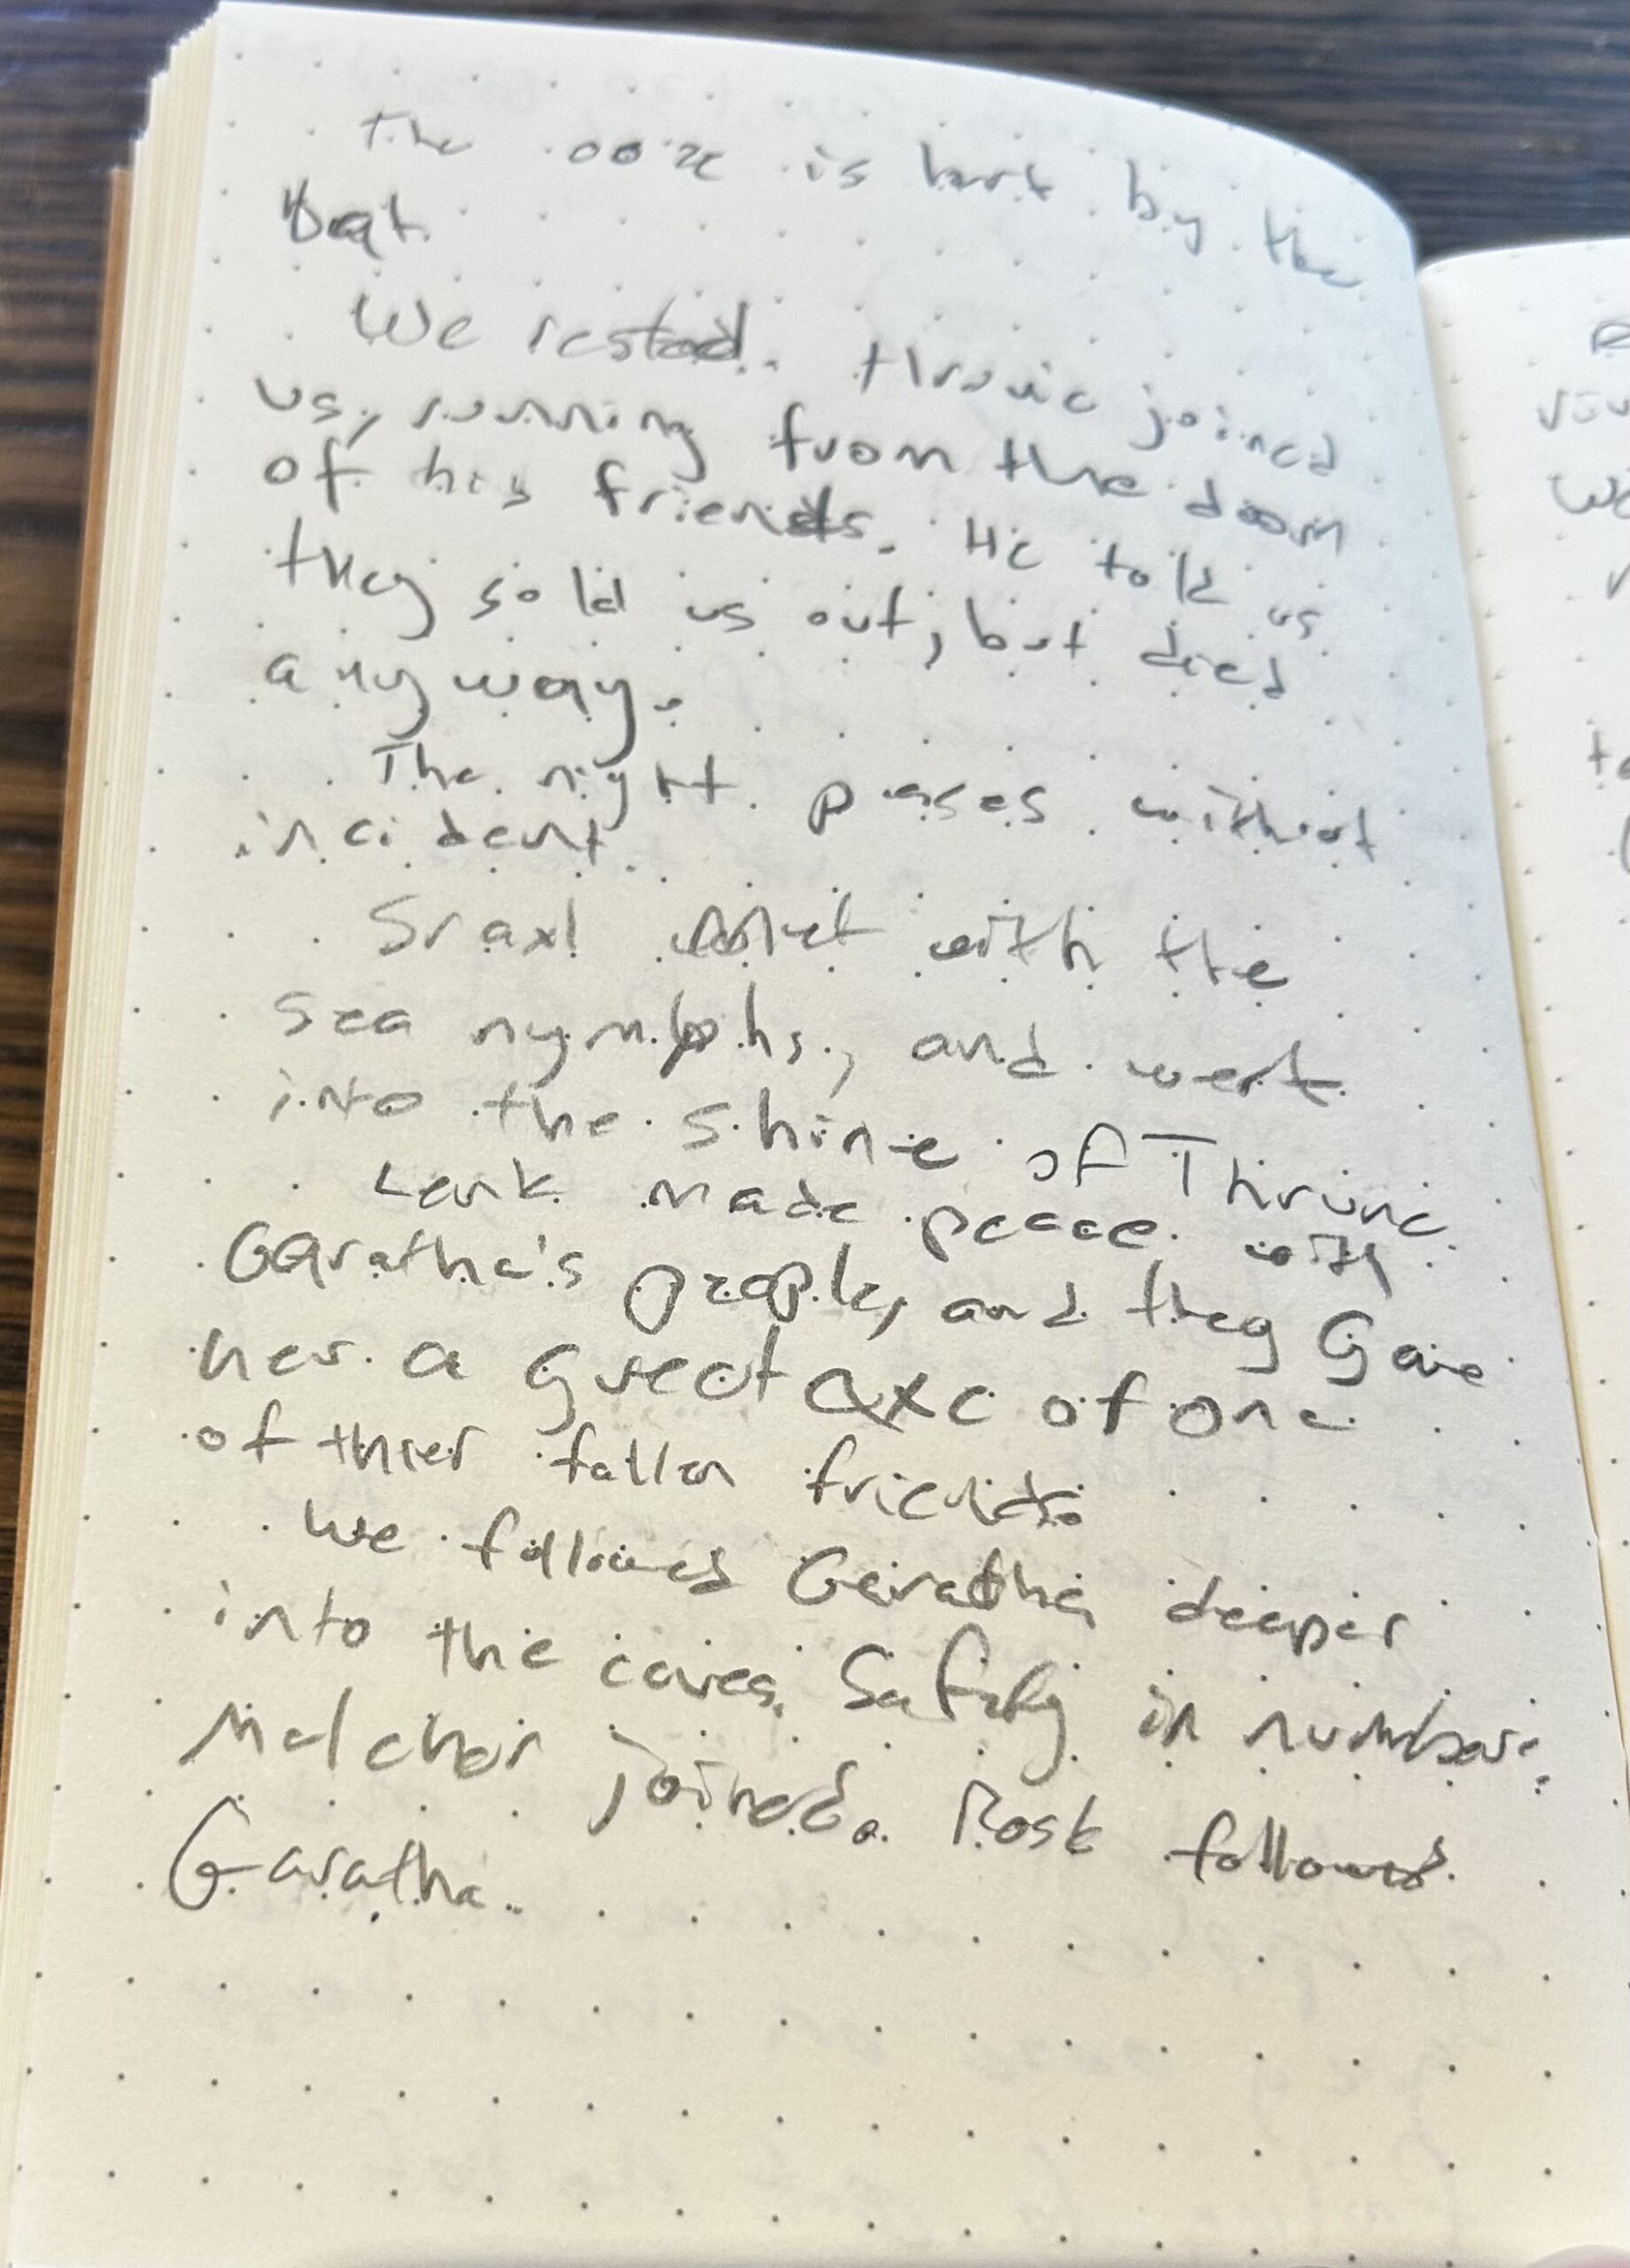 the ooze is hurt by the
Bat.
We rested. thrunc joined
us, running from the doom
of his friends. He told us
they sold us out, but died
anyway.
The night pases without
incident.
Sraxl met with the
sea nymphs, and went
into the shine of Thrunc
Lark made peace with
Garatha's people, and they Gave
her a great axe of one
of thier fallen friends
We followed Garatha deeper
into the caves. Safety in numbers.
Melchor joined. Rosk followed
Garatha.